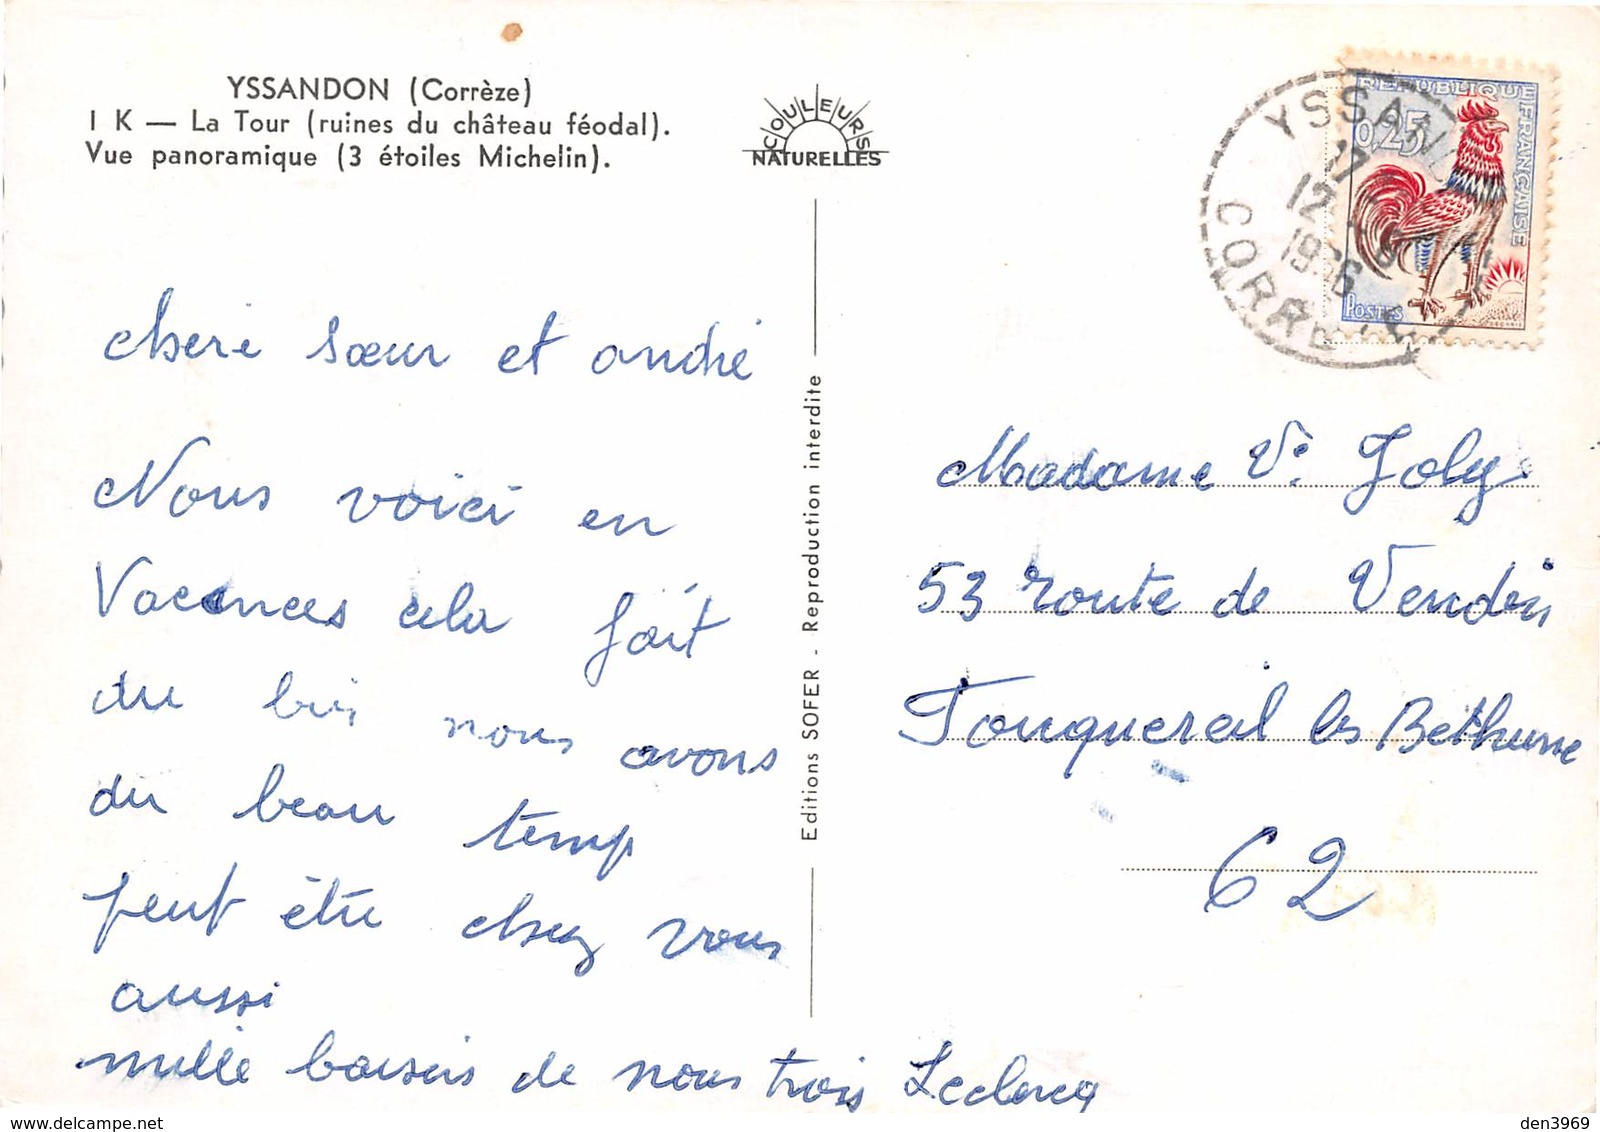 YSSANDON (Corrèze)
1 K — La Tour (ruines du château féodal).
Vue panoramique (3 étoiles Michelin).
COULEURS
NATURELLES
REPUBLIQUE FRANÇAISE
0,25
POSTES
YSSAN
17
12
1966
CORRÈZE
chere sœur et andré
Nous voici en
Vacances cela fait
du bien nous avons
du beau temp
peut être chez vous
aussi
mille baisers de nous trois Leclercq
Editions SOFER - Reproduction interdite
Madame Ve Joly
53 route de Vendin
Fouquereil les Bethune
62
den3969